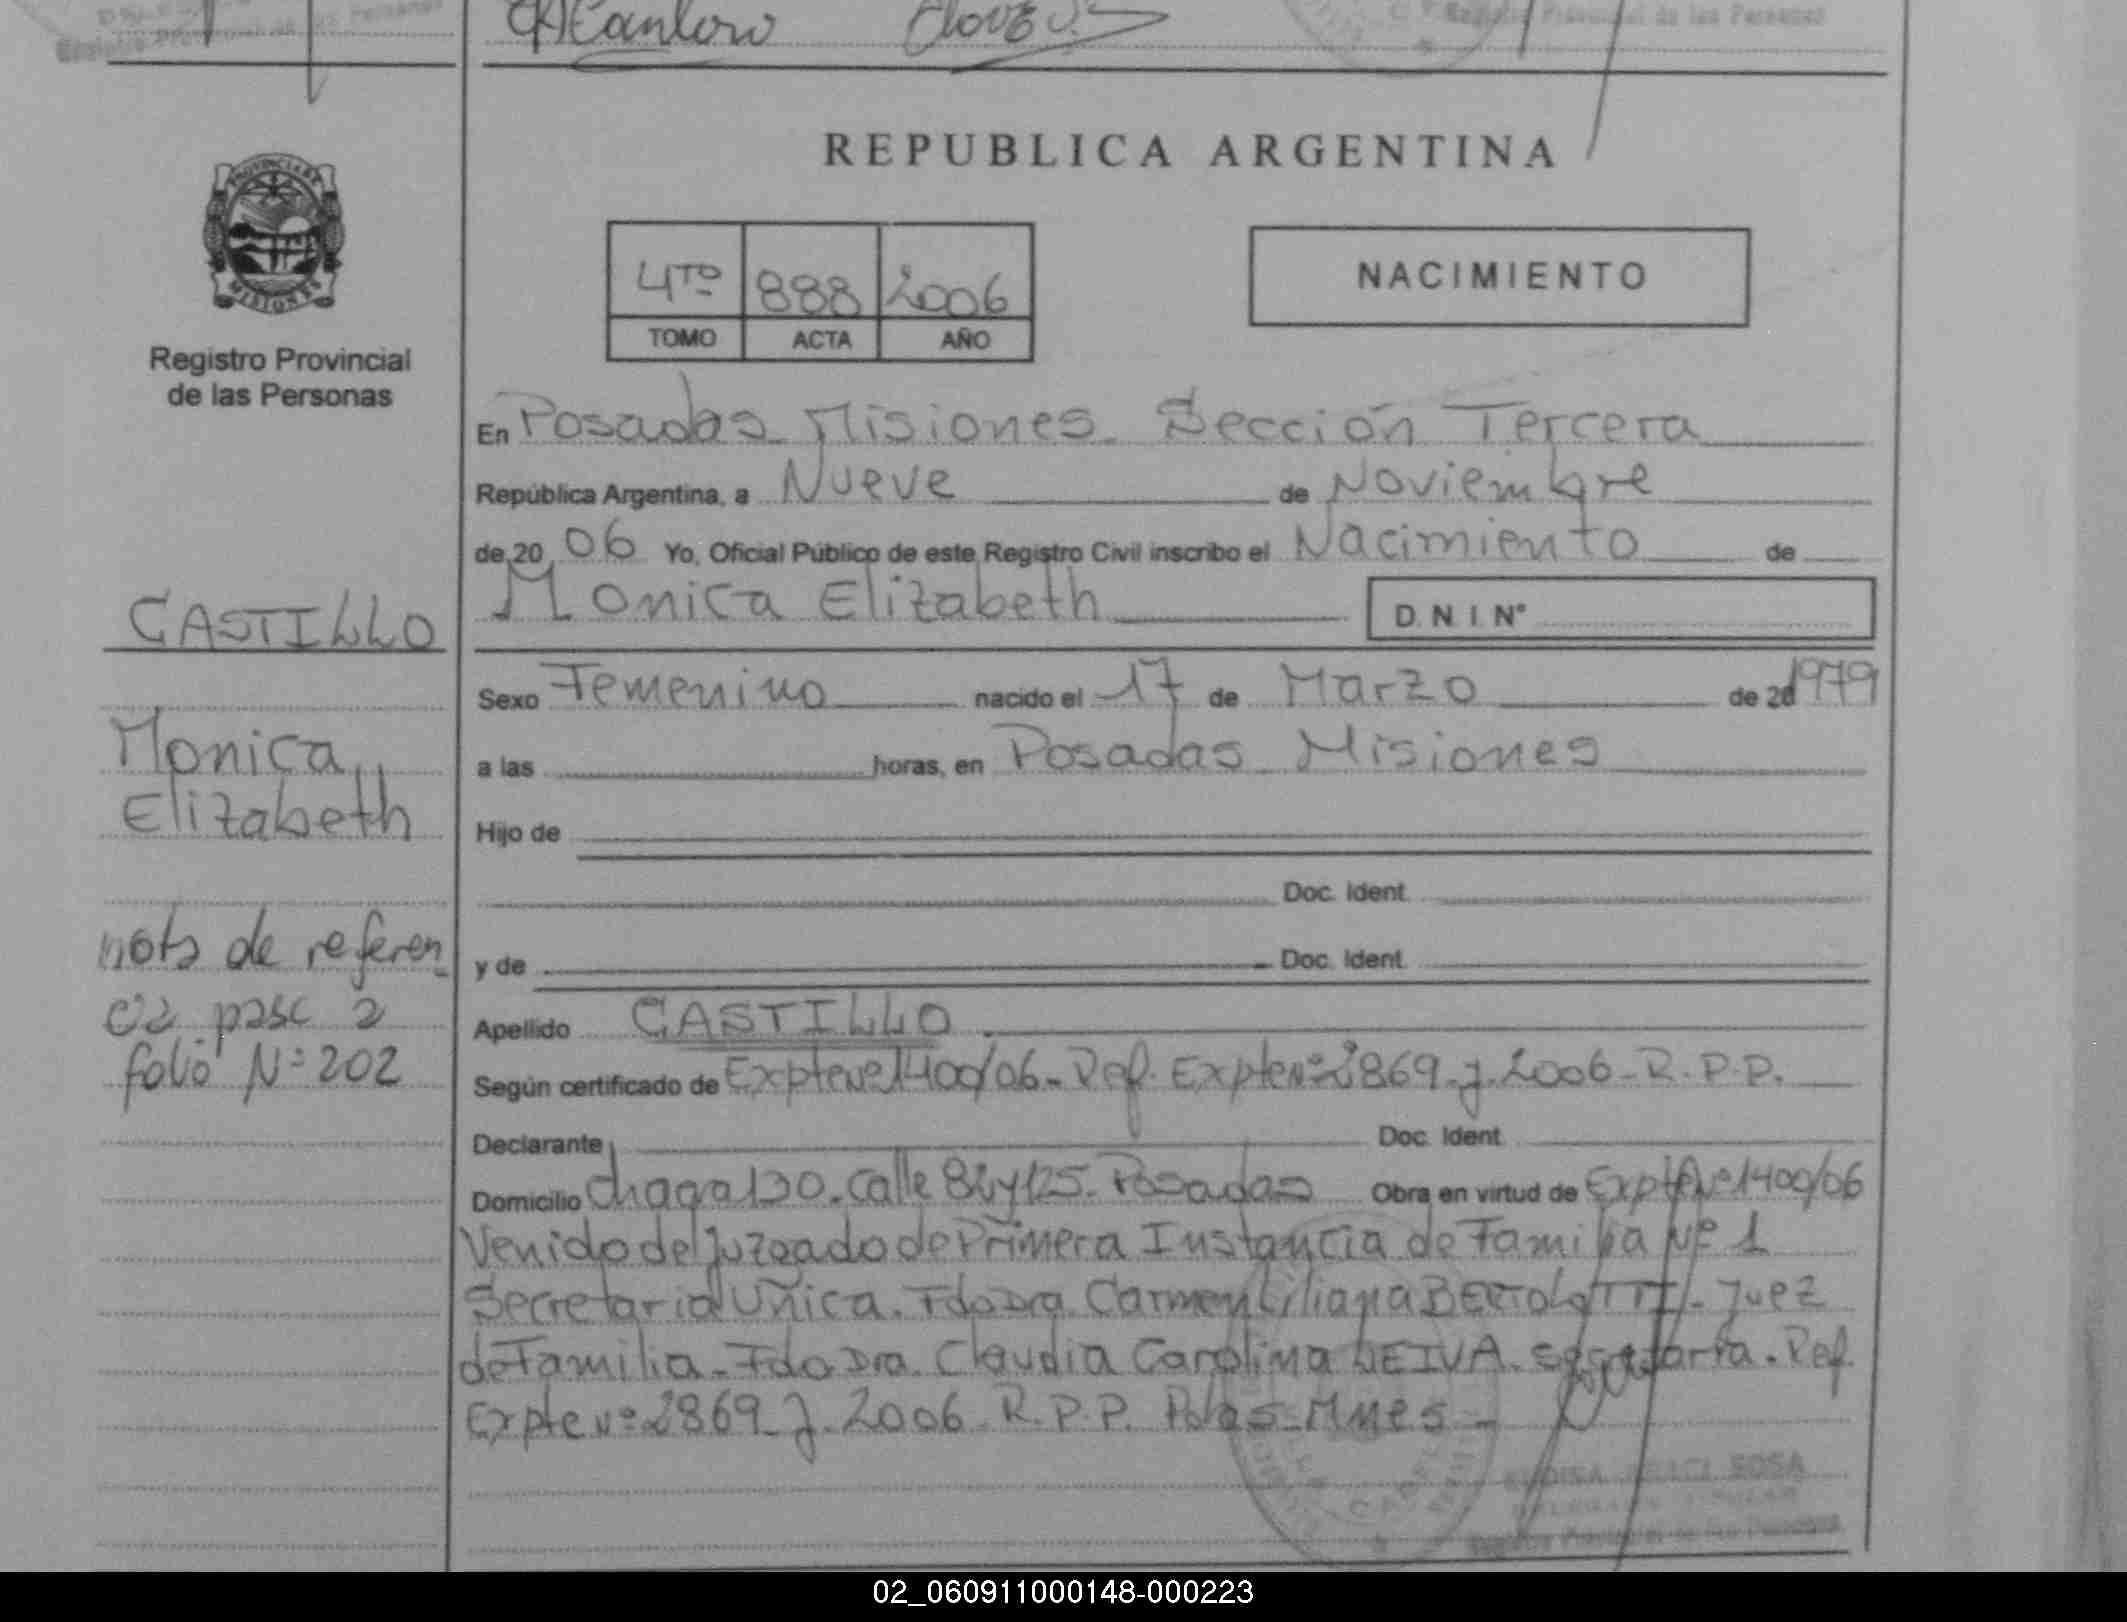 Registro Provincial de las Personas
Registro Provincial de las Personas
REPUBLICA ARGENTINA
PROVINCIA DE
MISIONES
Registro Provincial
de las Personas
4TO 888 2006
TOMO ACTA AÑO
NACIMIENTO
En Posadas Misiones Sección Tercera
República Argentina, a Nueve de Noviembre
de 20 06 Yo, Oficial Público de este Registro Civil inscribo el Nacimiento de
Monica Elizabeth D. N. I. N°
CASTILLO
Sexo Femenino nacido el 17 de Marzo de 20 1979
Monica
Elizabeth
a las horas, en Posadas Misiones
Hijo de
Doc. Ident.
nota de referen
cia pase a
folio N° 202
y de Doc. Ident.
Apellido CASTILLO
Según certificado de Expte Nº 1400/06 - Ref. Expte Nº 2869-J-2006-R.P.P.
Declarante Doc. Ident.
Domicilio Chagra 130. Calle 82 y 125. Posadas Obra en virtud de Expte Nº 1400/06
Venido del Juzgado de Primera Instancia de Familia Nº 1
Secretaria Unica. Fdo Dra. Carmen Liliana BERTOLOTTI - Juez
de Familia - Fdo Dra. Claudia Carolina LEIVA. Secretaria. Ref.
Expte Nº 2869-J-2006-R.P.P. Pdas-Mnes -
SOSA
Registro Provincial de las Personas
02_060911000148-000223